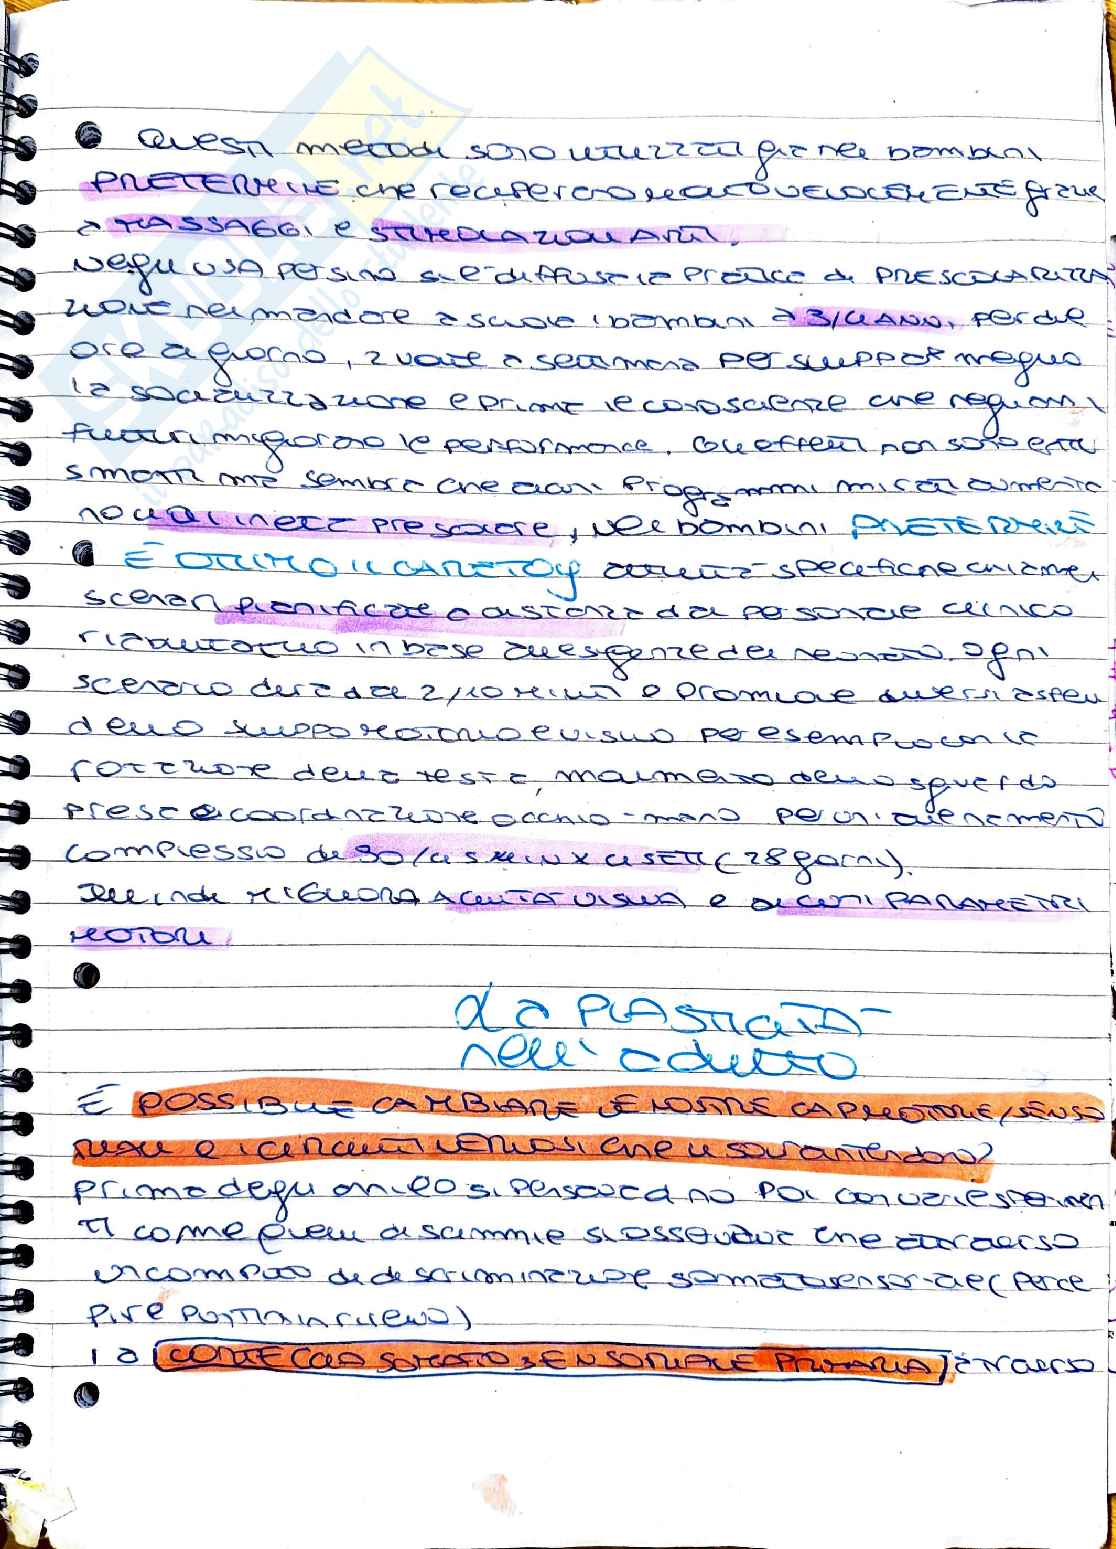 Questi metodi sono utilizzati già nei bambini
PRETERMINE che recuperano MOLTO VELOCEMENTE grazie
a MASSAGGI e STIMOLAZIONI ARTI.
Negli USA persino si è diffusa la pratica di PRESCOLARIZZA
ZIONE nel mandare a scuola i bambini a 3/4 ANNI, per due
ore al giorno, 2 volte a settimana per svilupp meglio
la socializzazione e prima le conoscienze che negli anni
futuri migliorano le performance. Gli effetti non sono
smotti ma sembra che alcuni programmi mirati aumenta
no il QI in età prescolare, Nei bambini PRETERMINE
È OTTIMO IL CARETOY attività specifiche chiamate
scenari pianificate a distanza dal personale clinico
riabilitativo in base alle esigenze del neonato. Ogni
scenario dura dai 2/10 minuti e promuove diversi aspetti
dello svilupp motorio e visivo per esempio con la
rotazione della testa, movimento dello sguardo
presa e coordinazione occhio-mano per un allenamento
complessio di 30/45 min x 4 SETT (28 giorni).
Quindi MIGLIORA ACUITÀ VISIVA e alcuni PARAMETRI
MOTORI
La PLASTICITÀ
nell'adulto
È POSSIBILE CAMBIARE LE NOSTRE CAP MOTORIE/SENSO
RIALI e i CIRCUITI NERVOSI che li sovraintendono?
prima degli anni 80 si pensava di no poi con vari esperimen
ti come quelli di scimmie si osservava che attraverso
un compito di descriminazione somatosensoriale (perce
pire punti in rilievo)
la CORTECCIA SOMATOSENSORIALE PRIMARIA attraverso
SKUOLA.net
il paradiso dello studente